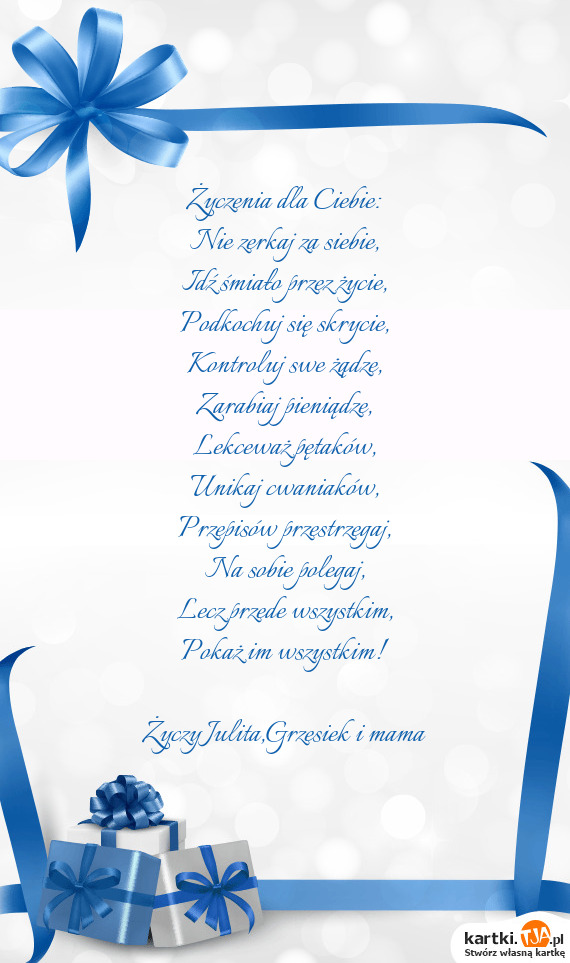 Życzenia dla Ciebie:
Nie zerkaj za siebie,
Idź śmiało przez życie,
Podkochuj się skrycie,
Kontroluj swe żądzę,
Zarabiaj pieniądzę,
Lekceważ pętaków,
Unikaj cwaniaków,
Przepisów przestrzegaj,
Na sobie polegaj,
Lecz przede wszystkim,
Pokaż im wszystkim!
Życzy Julita,Grzesiek i mama
kartki.TJA.pl
Stwórz własną kartkę